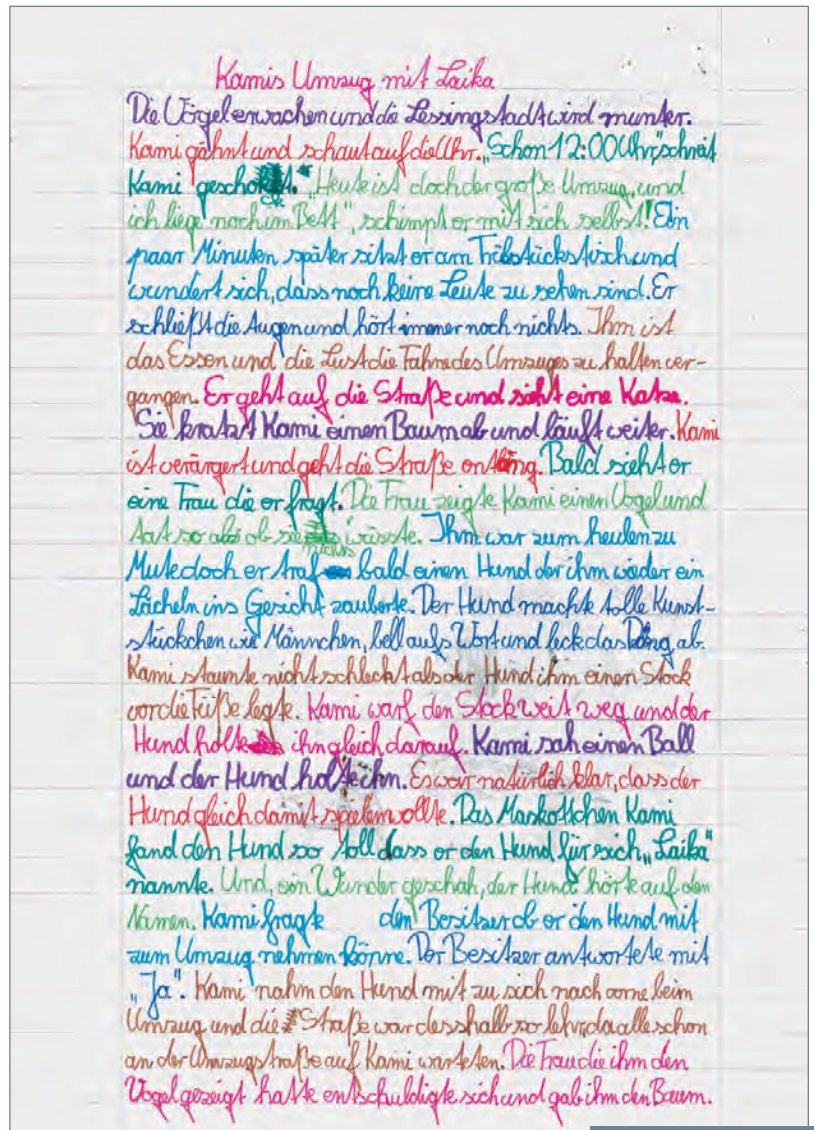 Kamis Umzug mit Laika
Die Vögel erwachen und die Lessingstadt wird munter.
Kami gähnt und schaut auf die Uhr. „Schon 12:00 Uhr," schreit
Kami geschockt. „Heute ist doch der große Umzug, und
ich liege noch im Bett", schimpt er mit sich selbst! Ein
paar Minuten später sitzt er am Früstückstisch und
wundert sich, dass noch keine Leute zu sehen sind. Er
schließt die Augen und hört immer noch nichts. Ihm ist
das Essen und die Lust die Fahne des Umzuges zu halten ver-
gangen. Er geht auf die Straße und sieht eine Katze.
Sie kratzt Kami einen Baum ab und läuft weiter. Kami
ist verärgert und geht die Straße entlang. Bald sieht er
eine Frau die er fragt. Die Frau zeigte Kami einen Vogel und
tat so als ob sie nichts wüsste. Ihm war zum heulen zu
Mute doch er traf bald einen Hund der ihm wieder ein
Lächeln ins Gesicht zauberte. Der Hund machte tolle Kunst-
stückchen wie Männchen, bell aufs Wort und leck das Ding ab.
Kami staunte nicht schlecht als der Hund ihm einen Stock
vor die Füße legte. Kami warf den Stock weit weg und der
Hund holte ihn gleich darauf. Kami sah einen Ball
und der Hund holte ihn. Es war natürlich klar, dass der
Hund gleich damit spielen wollte. Das Maskottchen Kami
fand den Hund so toll dass er den Hund für sich „Laika"
nannte. Und, ein Wunder geschah, der Hund hörte auf den
Namen. Kami fragte den Besitzer ob er den Hund mit
zum Umzug nehmen könne. Der Besitzer antwortete mit
„Ja". Kami nahm den Hund mit zu sich nach vorne beim
Umzug und die Straße war desshalb so lehr, da alle schon
an der Umzugstraße auf Kami warteten. Die Frau die ihm den
Vogel gezeigt hatte entschuldigte sich und gab ihm den Baum.